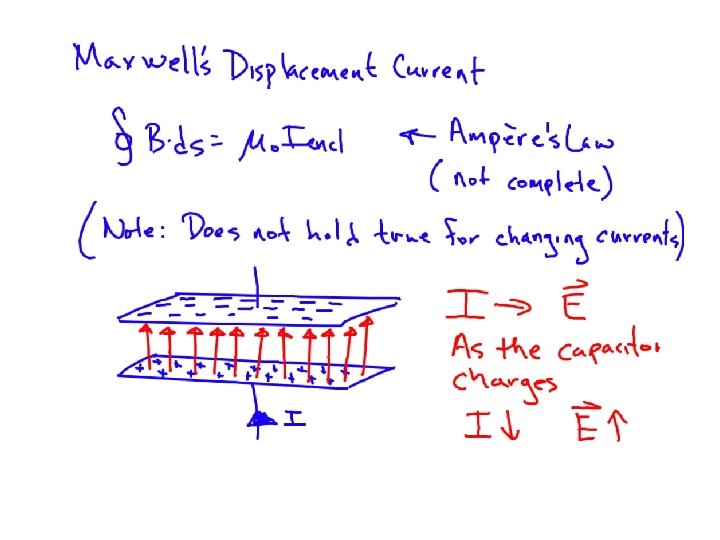 Maxwell's Displacement Current
∮ B·ds = μ₀Iencl ← Ampère's Law
(not complete)
(Note: Does not hold true for changing currents)
I → E⃗
As the capacitor
charges
I↓ E⃗↑
- - - - - - - - - - - - - - -
+ + + + + + + + + + + + + + +
I